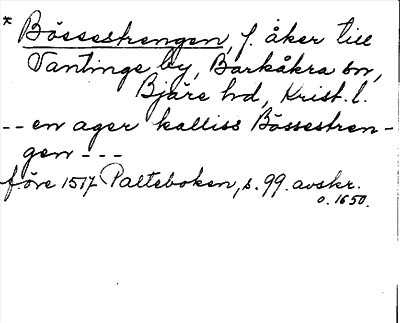 * Bössestrengen, f. åker till
Vantinge by, Barkåkra sn,
Bjäre hd, Krist. l.
-- en ager kalliss Bössestren-
gen ---
före 1517 Palteboken, s. 99. avskr.
o. 1650.